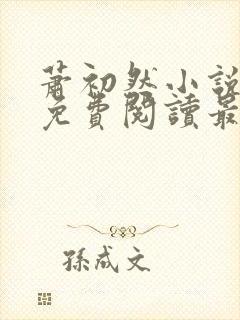 蕭初然小說
免費閱讀最
孫成文